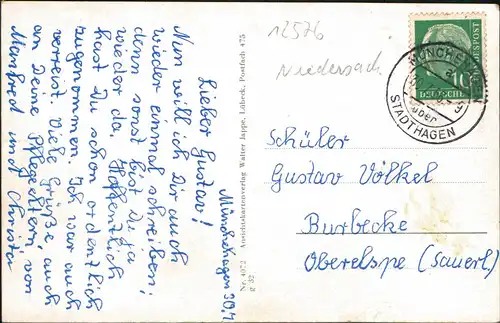 Münchehagen 30.4
Lieber Gustav!
Nun will ich Dir auch
wieder einmal schreiben!
denn sonst bist Du ja
wieder da. Hoffentlich
hast Du schon ordentlich
zugenommen. Ich war auch
verreist. Viele Grüße auch
an Deine Pflegeeltern, von
Manfred und Christa
Nr. 4072 Ansichtskartenverlag Walter Jappe, Lübeck, Postfach 475
12576
Niedersach
MÜNCHEHAGEN
über
STADTHAGEN
10
DEUTSCHE
BUNDESPOST
Schüler
Gustav Völkel
Burbecke
Oberelspe (Sauerl.)